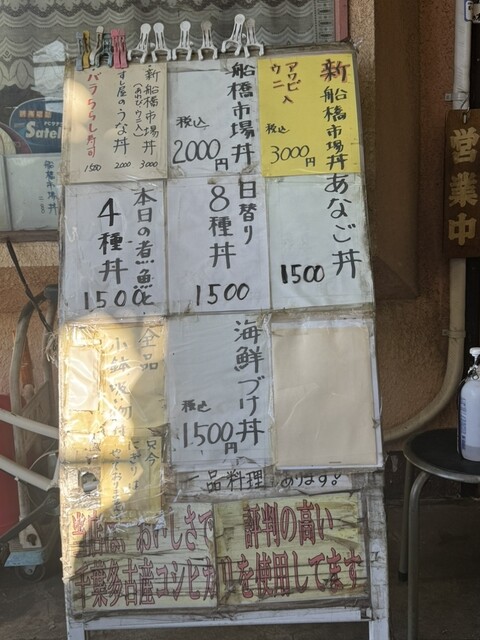 新 船橋市場丼
アワビ入
ウニ
税込
3000円
船橋市場丼
税込
2000円
新 船橋市場丼
3000
すし屋のうな丼
2000
バラちらし寿司
1500
あなご丼
1500
日替り
8種丼
1500
本日の煮魚と
4種丼
1500
海鮮づけ丼
税込
1,500円
全品
小鉢 吸い物付
只今
一品料理
あります。
評判の高い
おいしさで
千葉多古産コシヒカリを使用してます
営業中
Satel